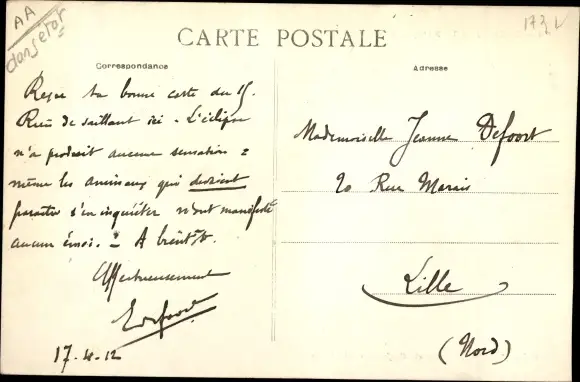 AA
dans etat
173 V
CARTE POSTALE
Correspondance
Adresse
Reçue ta bonne carte du 15.
Rien de saillant ici - L'éclipse
n'a produit aucune sensation :
même les animaux qui devaient
paraître s'en inquiéter n'ont manifesté
aucun émoi. - A bientôt.
Affectueusement
EDefoort
17.4.12
Mademoiselle Jeanne Defoort
20 Rue Marais
Lille
(Nord)